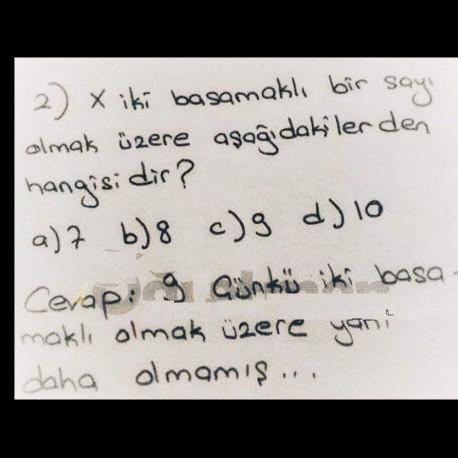 2) X iki basamaklı bir sayı
olmak üzere aşağıdakilerden
hangisidir?
a) 7 b) 8 c) 9 d) 10
Cevap: 9 Günkü iki basa-
maklı olmak üzere yani
daha olmamış...